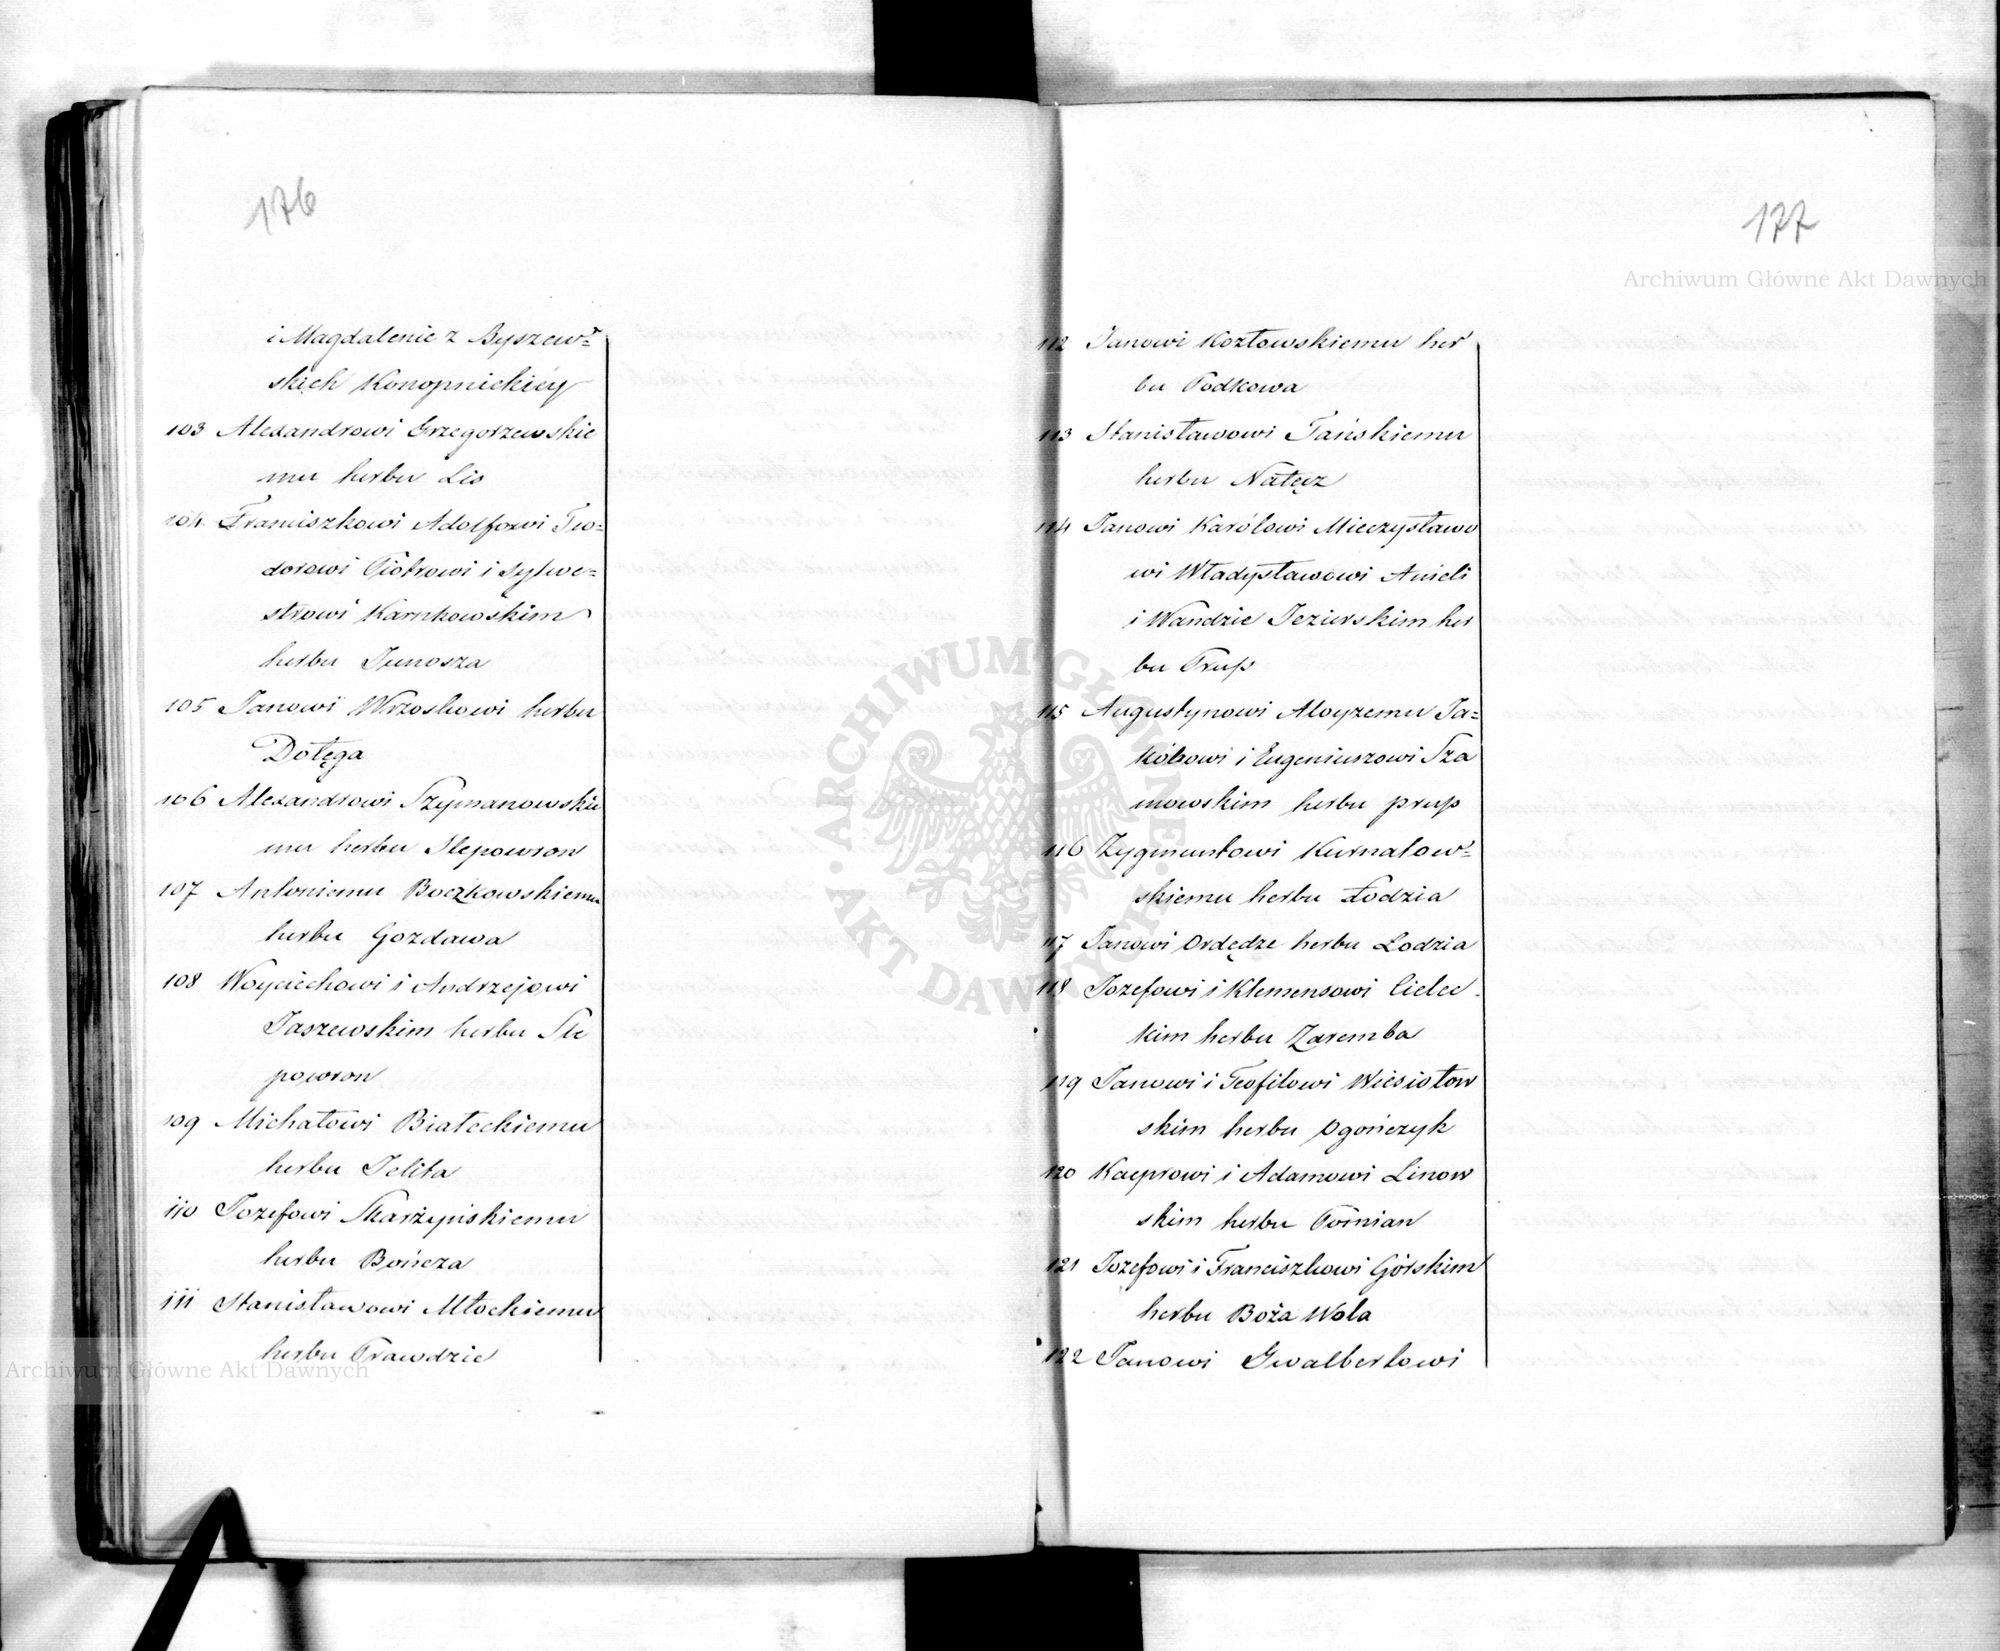 176
i Magdalenie z Byszew=
skich Konopnickiéy
103 Alexandrowi Grzegorzewskie
mu herbu Lis
104 Franciszkowi Adolfowi Teo=
dorowi Piotrowi i Sylwe=
strowi Karnkowskim
herbu Junosza
105 Janowi Wrzoskowi herbu
Dołęga
106 Alexandrowi Szymanowskie
mu herbu Slepowron
107 Antoniemu Boczkowskiemu
herbu Gozdawa
108 Woyciechowi i Andrzejowi
Jaszewskim herbu Sle
powron
109 Michałowi Białeckiemu
herbu Jelita
110 Jozefowi Skarżyńskiemu
herbu Bończa
111 Stanisławowi Młockiemu
herbu Prawdzic
177
Archiwum Główne Akt Dawnych
112 Janowi Kozłowskiemu her
bu Podkowa
113 Stanisławowi Tańskiemu
herbu Nałęcz
114 Janowi Karólowi Mieczysławo
wi Władysławowi Anieli
i Wandzie Jezierskim her
bu Pruss
115 Augustynowi Aloyzemu Ja=
kóbowi i Eugeniuszowi Sza
mowskim herbu pruss
116 Zygmuntowi Kurnatow=
skiemu herbu Łodzia
117 Janowi Ordędze herbu Łodzia
118 Jozefowi i Klemensowi Cielec
kim herbu Zaremba
119 Janowi i Teofilowi Wiesiołow
skim herbu Ogończyk
120 Kacprowi i Adamowi Linow
skim herbu Pomian
121 Jozefowi i Franciszkowi Górskim
herbu Boża Wola
122 Janowi Gwalbertowi
ARCHIWUM GŁÓWNE AKT DAWNYCH
Archiwum Główne Akt Dawnych